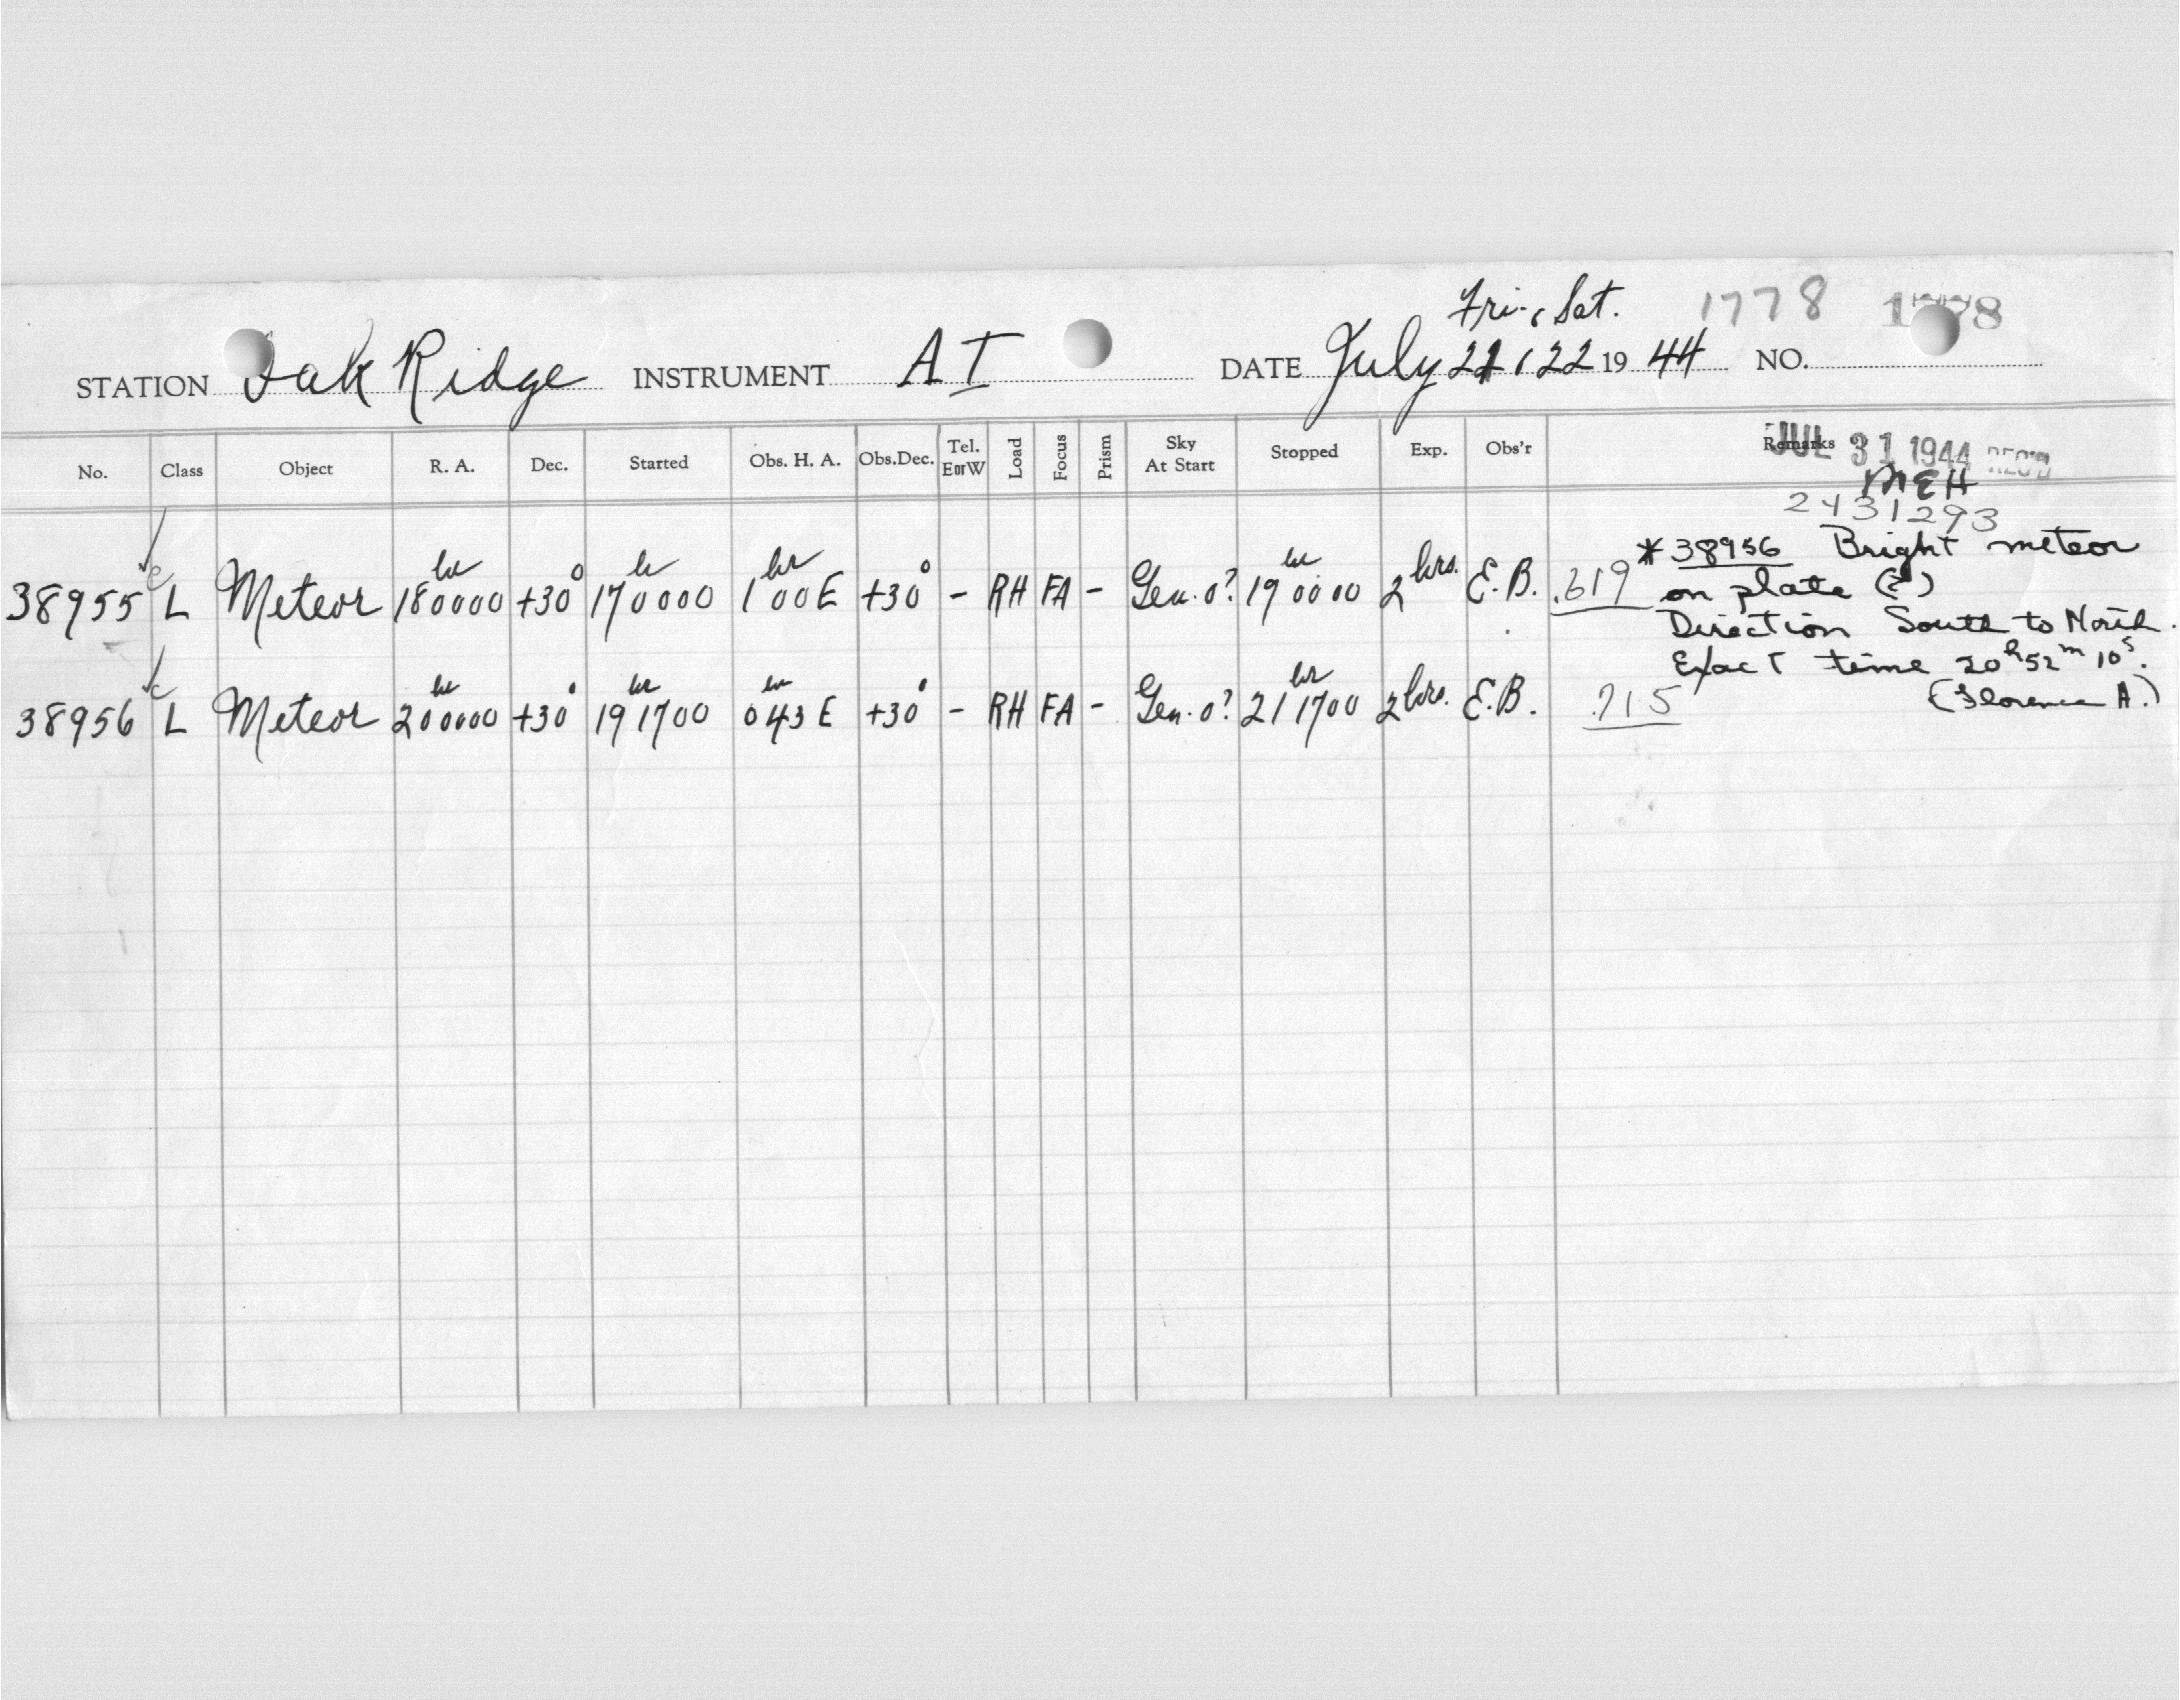 Fri., Sat. 1778 1778
STATION Oak Ridge INSTRUMENT AI DATE July 21, 22 19 44 NO.
No. Class Object R. A. Dec. Started Obs. H. A. Obs. Dec. Tel. E or W Load Focus Prism Sky At Start Stopped Exp. Obs'r Remarks
JUL 31 1944 REC'D
MEH
2431293
*38956 Bright meteor
38955 c L Meteor 18hr 00 00 +30° 17h 00 00 1hr 00 E +30° - RH FA - Gen. 0? 19hr 00 00 2hrs. E.B. .619 on plate (?)
Direction South to North.
Exact time 20h 52m 10s.
38956 c L Meteor 20hr 00 00 +30° 19hr 17 00 0hr 43 E +30° - RH FA - Gen. 0? 21hr 17 00 2hrs. E.B. .715 (Florence A.)